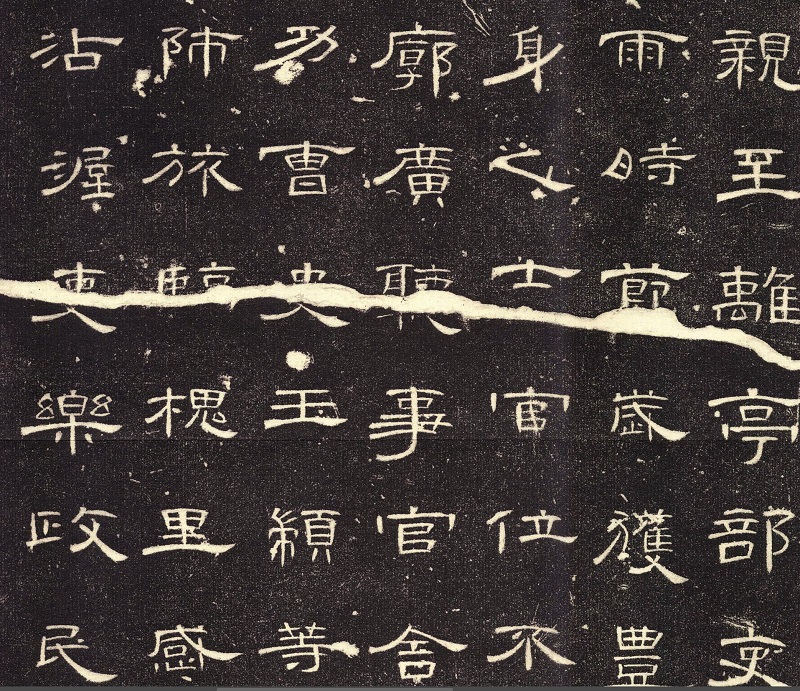 親至離亭部吏
雨時節歲獲豐
身之士官位不
廓廣聽事官舍
功曹史王顓等
師旅臨槐里感
沾渥吏樂政民